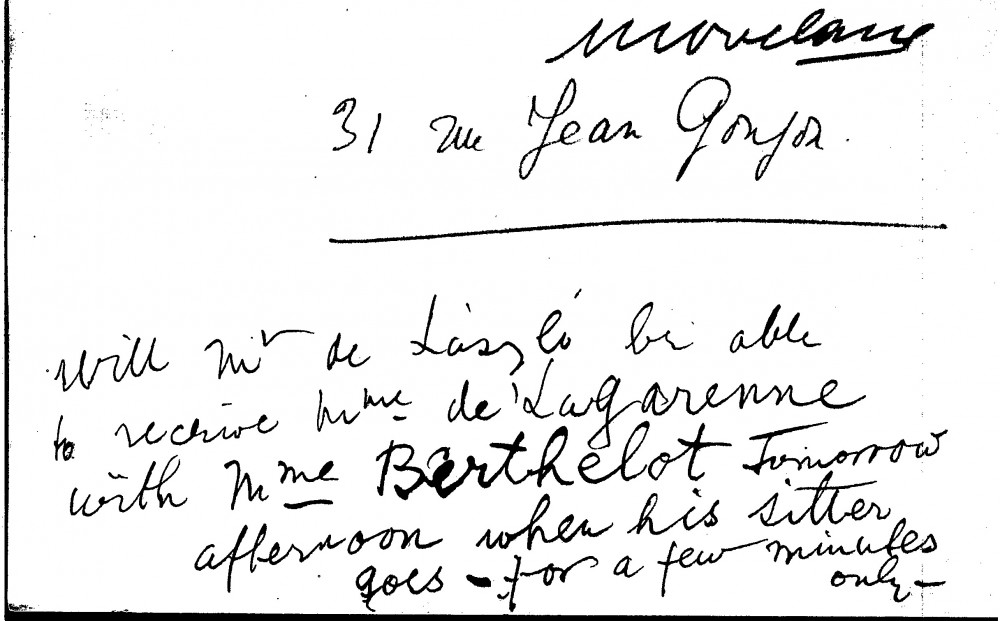 31 rue Jean Goujon.
Will Mr de László be able
to receive Mme de Lagarenne
with Mme Berthelot Tomorrow
afternoon when his sitter
goes - for a few minutes
only -